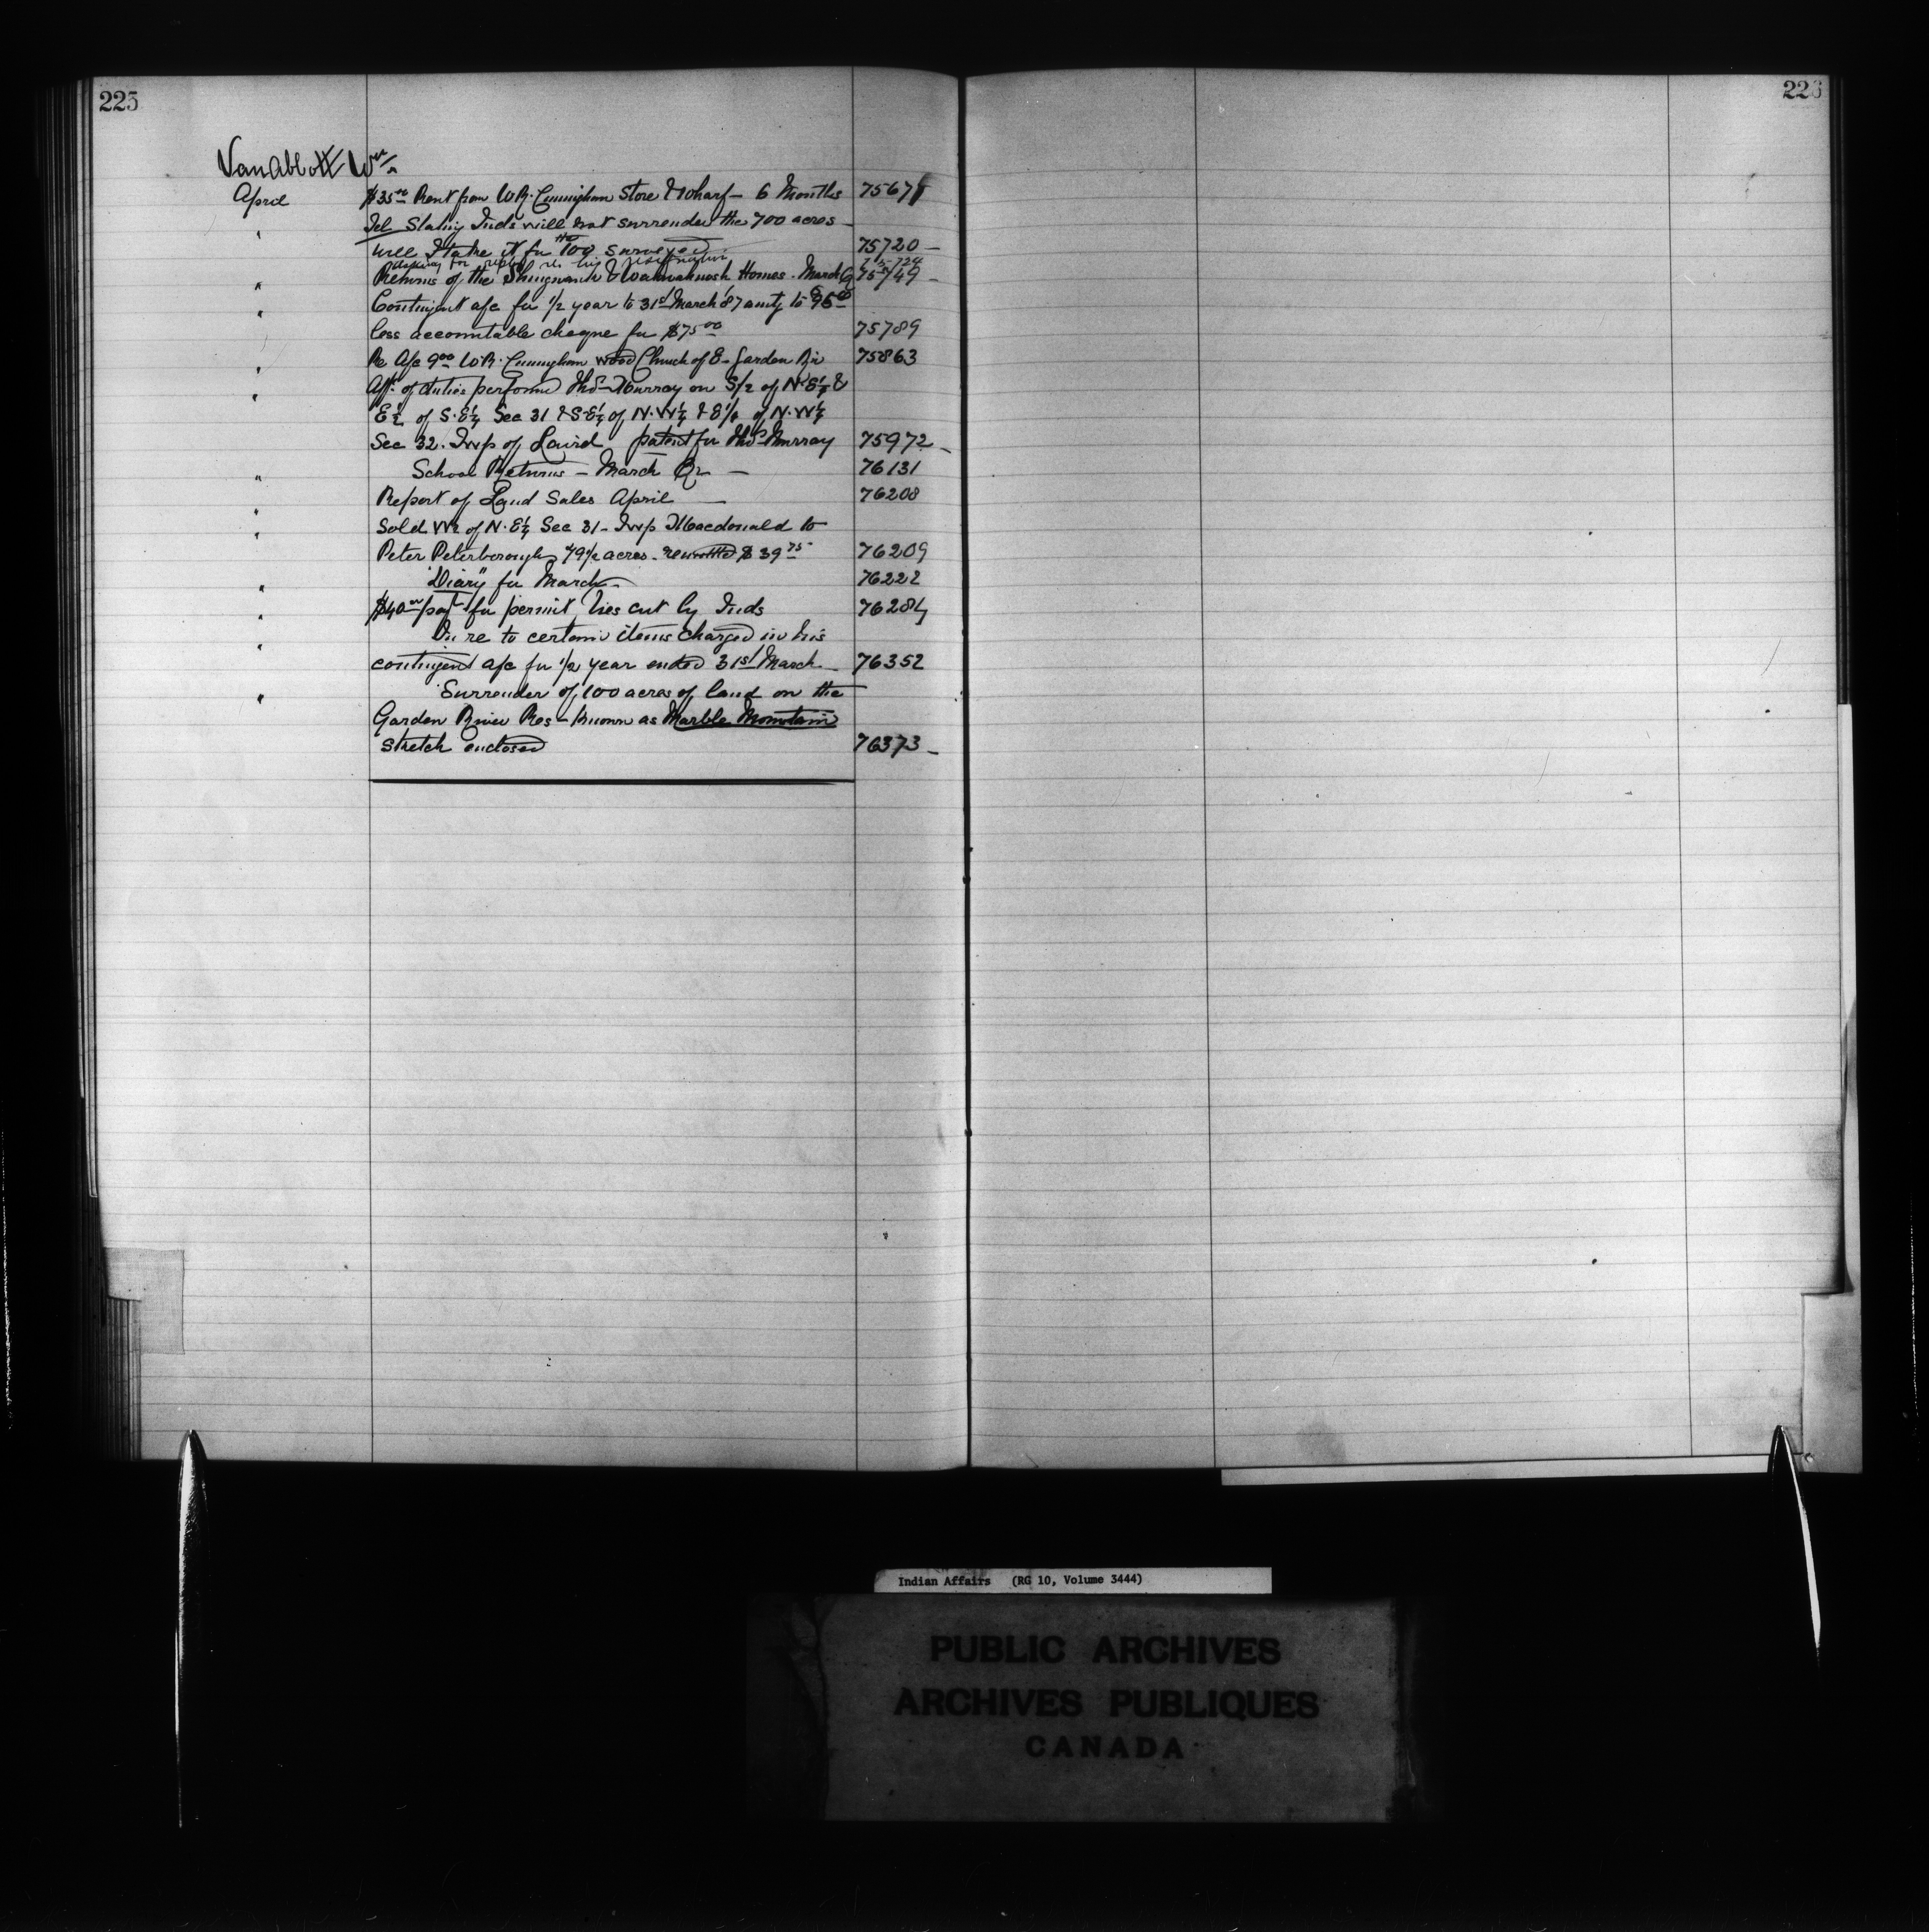 225
226
VanAbbott Wm
April $35.00 Rent from W.R. Cunningham Store & Wharf - 6 Months 75671
" Tel Stating Inds will not surrender the 700 acres -
will I take it for the 100 surveyed 75720 -
Asking for reply re his resignation 75724
" Returns of the Shingwauk & Wawanosh Homes. March Qr 75749 -
" Contingent a/c for 1/2 year to 31st March '87 amtg to
less accountable cheque for $75.00 75789
" Re A/c 9.00 W.R. Cunningham wood Church of E - Garden Riv 75863
" Afft of duties performed Thos Murray on S/2 of N.E¼ &
E½ of S.E¼ Sec 31 & S.E¼ of N.W¼ & E½ of N.W¼
Sec 32. Twp of Laird patent for Thos Murray 75972 -
" School Returns - March Qr - 76131
" Report of Land Sales April - 76208
" Sold W½ of N.E¼ Sec 31 - Twp Macdonald to
Peter Peterborough 79½ acres - remitted $39.75 76209
" "Diary" for March - 76222
" $40.00 payt for permit, ties cut by Inds 76284
" In re to certain items charged in his
contingent a/c for 1/2 year ended 31st March - 76352
" Surrender of 100 acres of land on the
Garden River Res - known as Marble Mountain
sketch enclosed 76373 -
Indian Affairs (RG 10, Volume 3444)
PUBLIC ARCHIVES
ARCHIVES PUBLIQUES
CANADA